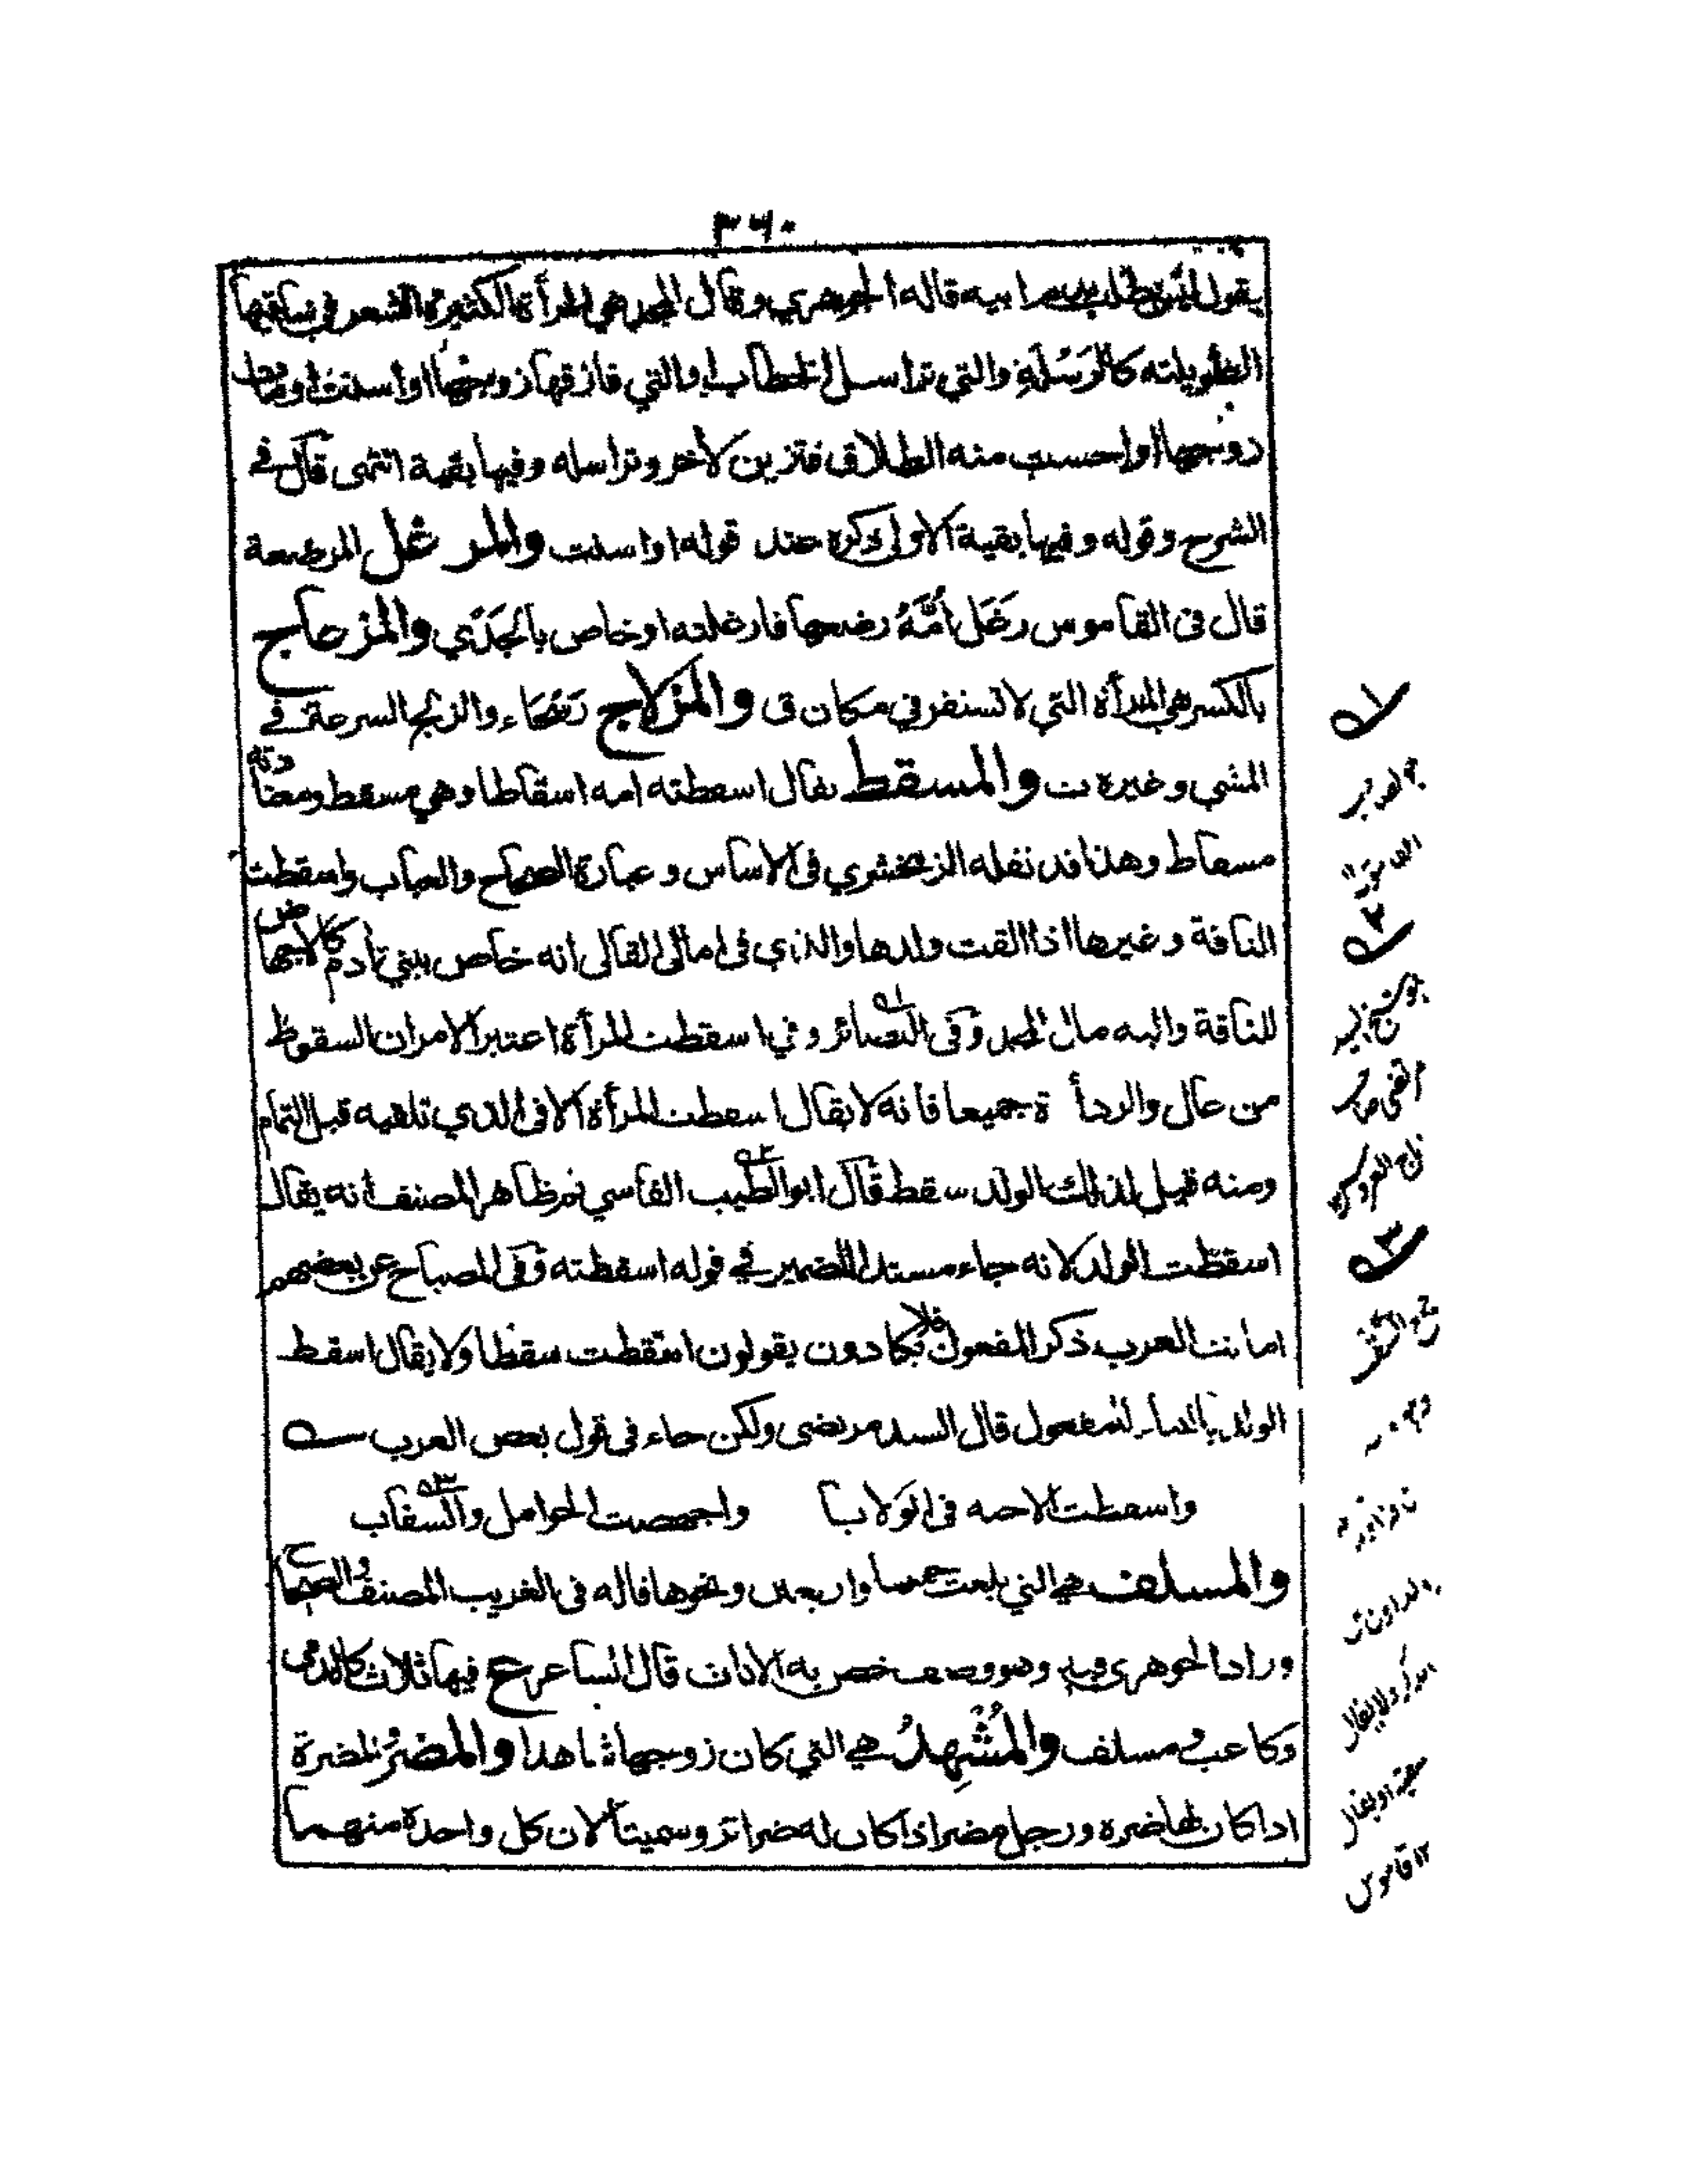 ٣٦٠
يقول قاله الجوهري وقال المجد هي المرأة الكثيرة الشعر في ساقيها
الطويلته كالرَسْلَةِ والتي تراسل الخطاب والتي فارقها زوجها او اسنت او مات
زوجها او احست منه الطلاق فتزين لآخر وتراسله وفيها بقية انتهى قال في
الشرح وقوله وفيها بقية الاولى ذكره عند قوله او اسنت والمرغل المرضعة
قال في القاموس رَغَل أُمَّهُ رضعها فارغلته او خاص بالجَدْي والمزعاج
بالكسر هي المرأة التي لا تستقر في مكان ق والمزلاج رَسْحَاء والزلج السرعة في
المشي وغيره ت والمسقط يقال اسقطته امه اسقاطا وهي مسقط ومعتادته
مسقاط وهذا قد نقله الزمخشري في الاساس وعبارة الصحاح والعباب واسقطت
الناقة وغيرها اذا القت ولدها والذي في امالي القالي انه خاص ببني آدم كالاجهاض
للناقة واليه مال المجد وفي البصائر وفي اسقطت المرأة اعتبر الامران السقوط
من عال والرداءة جميعا فانه لا يقال اسقطت المرأة الا في الذي تلقيه قبل التمام
ومنه قيل لذلك الولد سقط قال ابو الطيب الفاسي ثم ظاهر المصنف انه يقال
اسقطت الولد لانه جاء مسندا للضمير في قوله اسقطته وفي المصباح عن بعضهم
اماتت العرب ذكر المفعول فلا يكادون يقولون اسقطت سقطا ولا يقال اسقط
الولد بالبناء للمفعول قال السيد مرتضى ولكن جاء في قول بعض العرب
واسقطت الاجنة في الولايا واجهضت الحوامل والسقاب
والمسلف هي التي بلغت خمسا واربعين ونحوها قاله في الغريب المصنف والصحاح
وزاد الجوهري وهو وصف خص به الاناث قال الشاعر ع فيها ثلاث كالدمى
وكاعب ومسلف والمُشْهِدُ هي التي كان زوجها شاهدا والمضرُ لمضرة
اذا كان لها ضرة ورجل مضر اذا كان له ضرائر وسميتا لان كل واحدة منهما
١
٢
تاج العروس
٣
١٢ قاموس